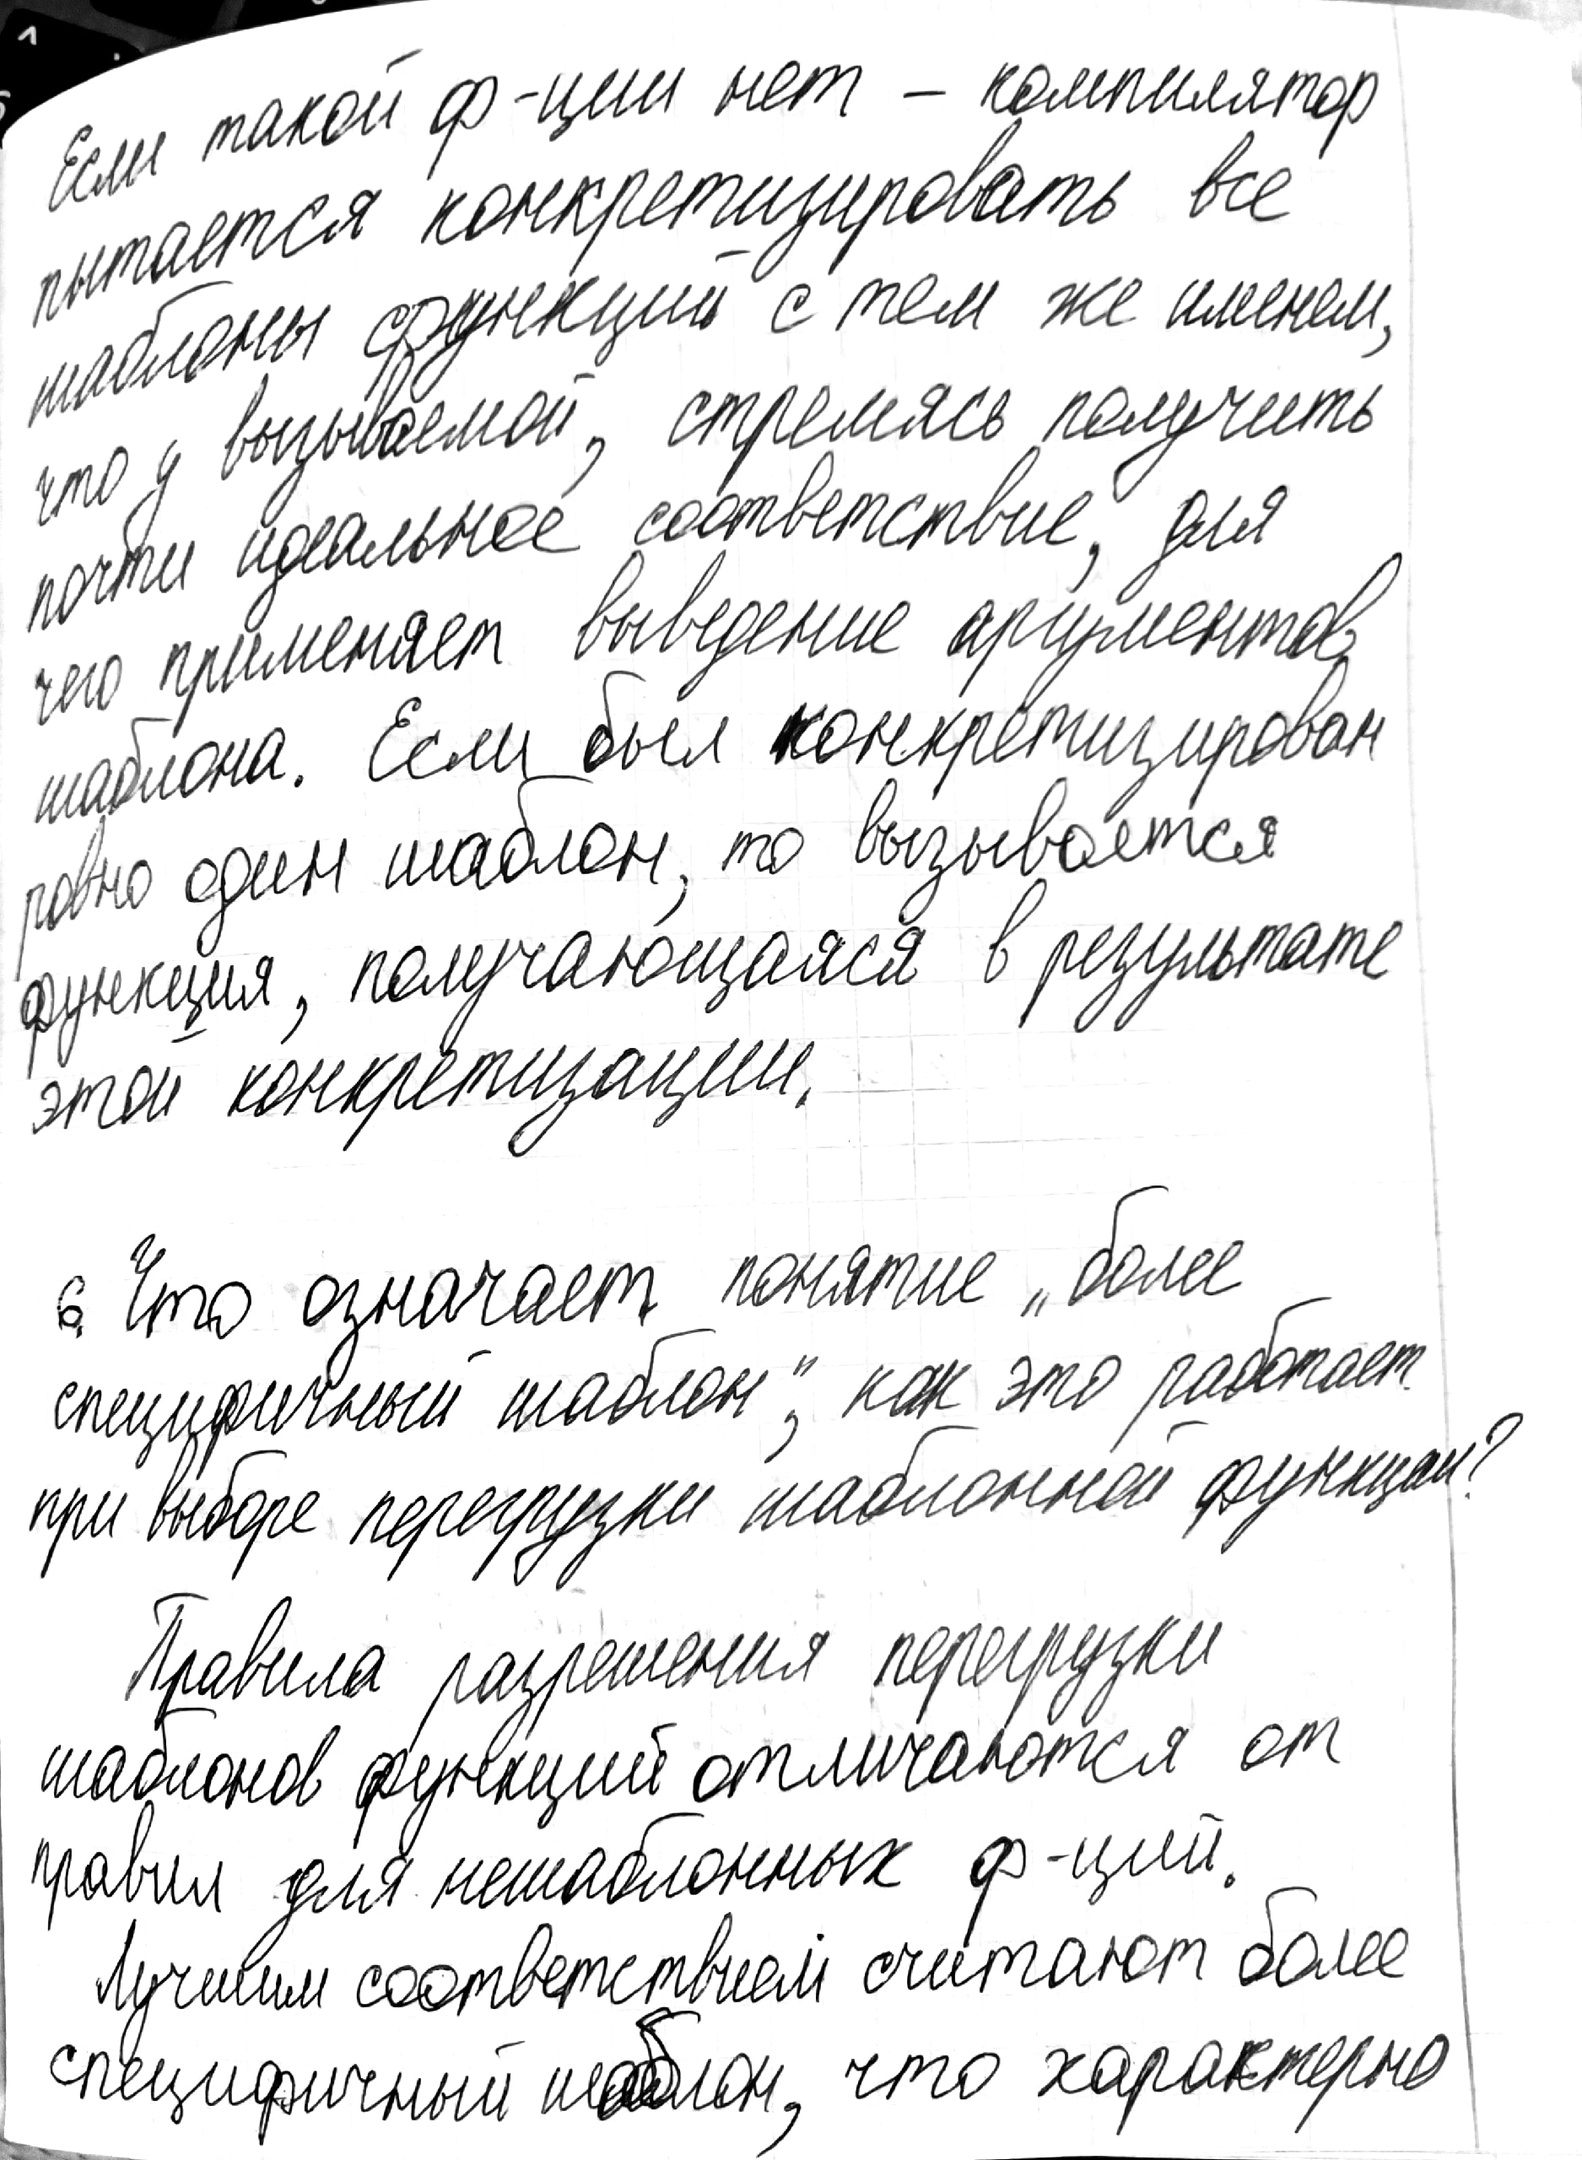 Если такой ф-ции нет – компилятор
пытается конкретизировать все
шаблоны функций с тем же именем,
что у вызываемой, стремясь получить
почти идеальное соответствие, для
чего применяет выведение аргументов
шаблона. Если был конкретизирован
ровно один шаблон, то вызывается
функция, получающаяся в результате
этой конкретизации.
6. Что означает понятие „более
специфичный шаблон", как это работает
при выборе перегрузки шаблонной функции?
Правила разрешения перегрузки
шаблонов функций отличаются от
правил для нешаблонных ф-ций.
Лучшим соответствием считают более
специфичный шаблон, что характерно